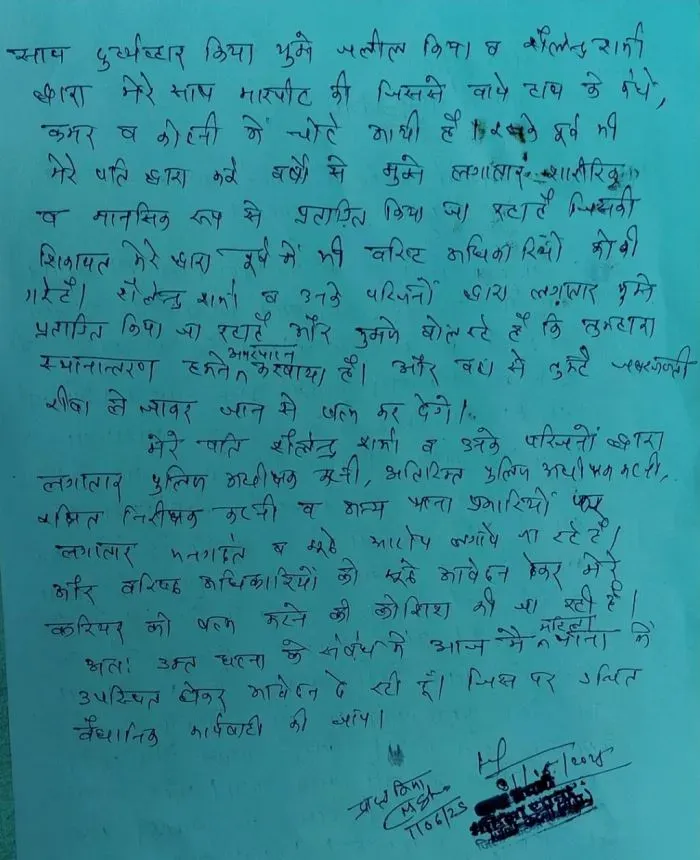 साथ दुर्व्यवहार किया मुझे जलील किया व शैलेन्द्र शर्मा
द्वारा मेरे साथ मारपीट की जिससे बाये हाथ के कंधे,
कमर व कोहनी में चोटे आयी है। इसके पूर्व भी
मेरे पति द्वारा कई वर्षो से मुझे लगातार शारीरिक
व मानसिक रूप से प्रताडित किया जा रहा है जिसकी
शिकायत मेरे द्वारा पूर्व में भी वरिष्ट अधिकारियों को की
गई है। शैलेन्द्र शर्मा व उनके परिजनों द्वारा लगातार मुझे
प्रताडित किया जा रहा है और मुझसे बोल रहे है कि तुम्हारा
स्थानान्तरण हमने करवाया है। और वहा से तुम्हे जबरजस्ती
रीवा ले जाकर जान से खत्म कर देंगे।
मेरे पति शैलेन्द्र शर्मा व उनके परिजनों द्वारा
लगातार पुलिस अधीक्षक कटनी, अतिरिक्त पुलिस अधीक्षक कटनी,
रक्षित निरीक्षक कटनी व अन्य थाना प्रभारियों पर
लगातार मनगढंत व झूठे आरोप लगाये जा रहे है।
और वरिष्ठ अधिकारियों को झूठे आवेदन देकर मेरे
करियर को खत्म करने की कोशिश की जा रही है।
अतः उक्त घटना के संबंध में आज मै महिला थाना में
उपस्थित होकर आवेदन दे रही हूँ। जिस पर उचित
वैधानिक कार्यवाही की जाय।
प्राप्त किया